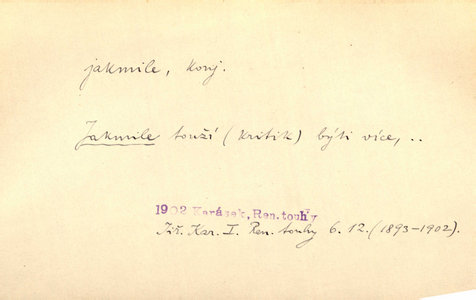 jakmile, konj.
Jakmile touží (kritik) býti více,..
1902 Karásek, Ren. touhy
Jiř. Kar. I. Ren. touhy 6. 12. (1893-1902).